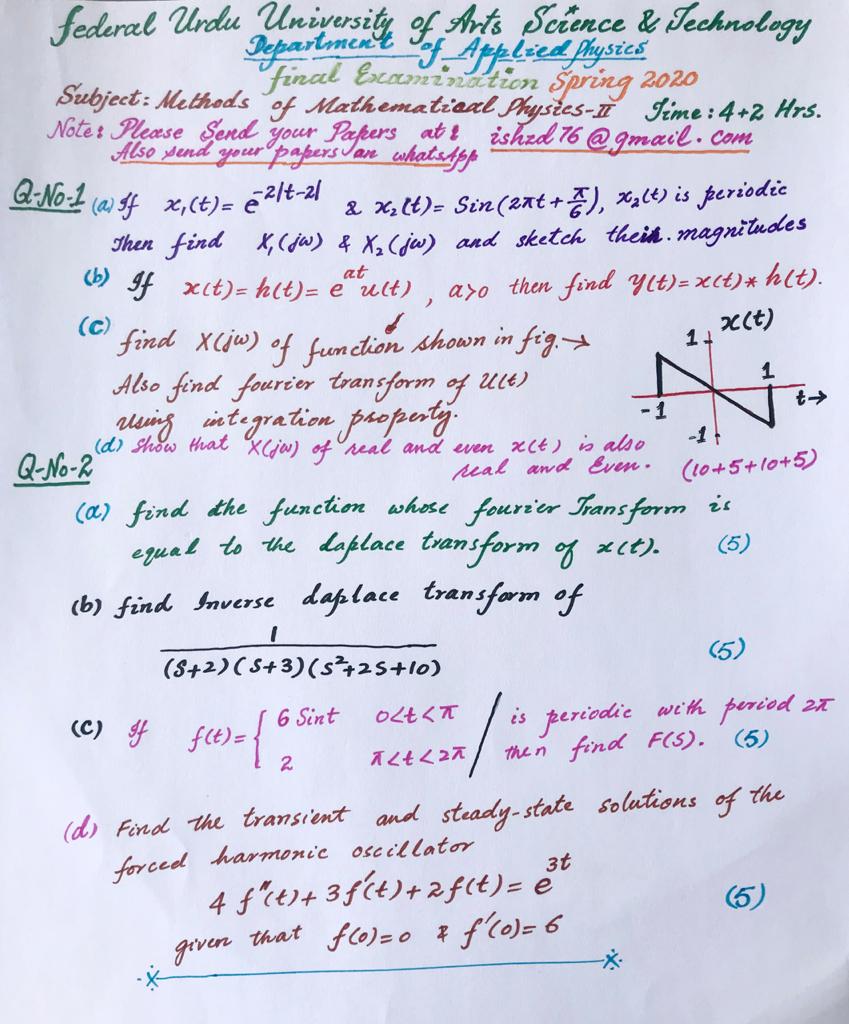 Federal Urdu University of Arts Science & Technology
Department of Applied Physics
final Examination Spring 2020
Subject: Methods of Mathematical Physics-II Time: 4+2 Hrs.
Note: Please Send your Papers at: ishzd76@gmail.com
Also send your papers on whatsApp
Q-No-1 (a) If x₁(t)= e^-2|t-2| & x₂(t)= Sin(2πt + π/6), x₂(t) is periodic
Then find X₁(jω) & X₂(jω) and sketch their magnitudes
(b) If x(t)= h(t)= e^at u(t), a>0 then find y(t)= x(t)* h(t).
(c) find X(jω) of function shown in fig. →
Also find fourier transform of U(t)
using integration property.
x(t)
1
1
-1
t→
-1
(d) Show that X(jω) of real and even x(t) is also
real and Even. (10+5+10+5)
Q-No-2
(a) find the function whose fourier Transform is
equal to the Laplace transform of x(t). (5)
(b) find Inverse Laplace transform of
1
(S+2)(S+3)(S²+2S+10) (5)
(c) If f(t)= { 6 Sint 0<t<π / is periodic with period 2π
2 π<t<2π / then find F(S). (5)
(d) Find the transient and steady-state solutions of the
forced harmonic oscillator
4 f″(t)+ 3f′(t)+2f(t)= e^3t (5)
given that f(0)=0 & f′(0)= 6